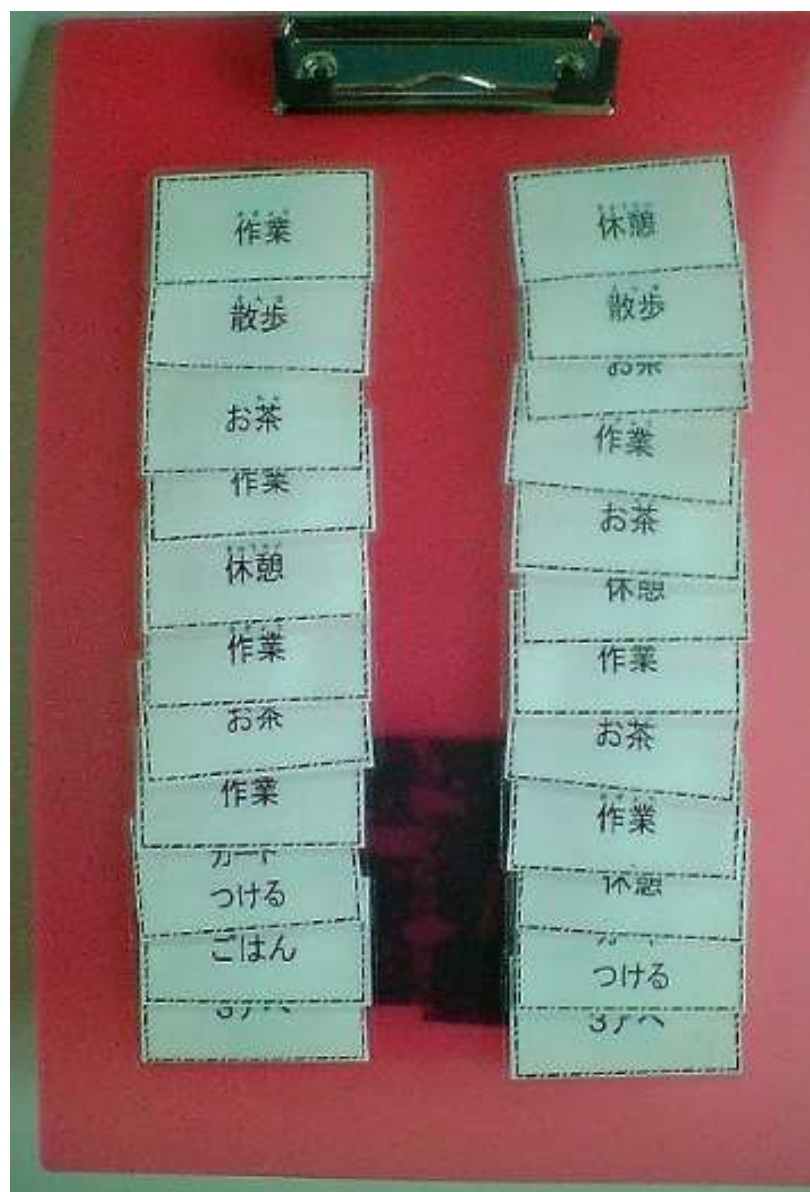 作業
散歩
お茶
作業
休憩
作業
お茶
作業
カード
つける
ごはん
休憩
散歩
お茶
作業
お茶
休憩
作業
お茶
作業
休憩
つける